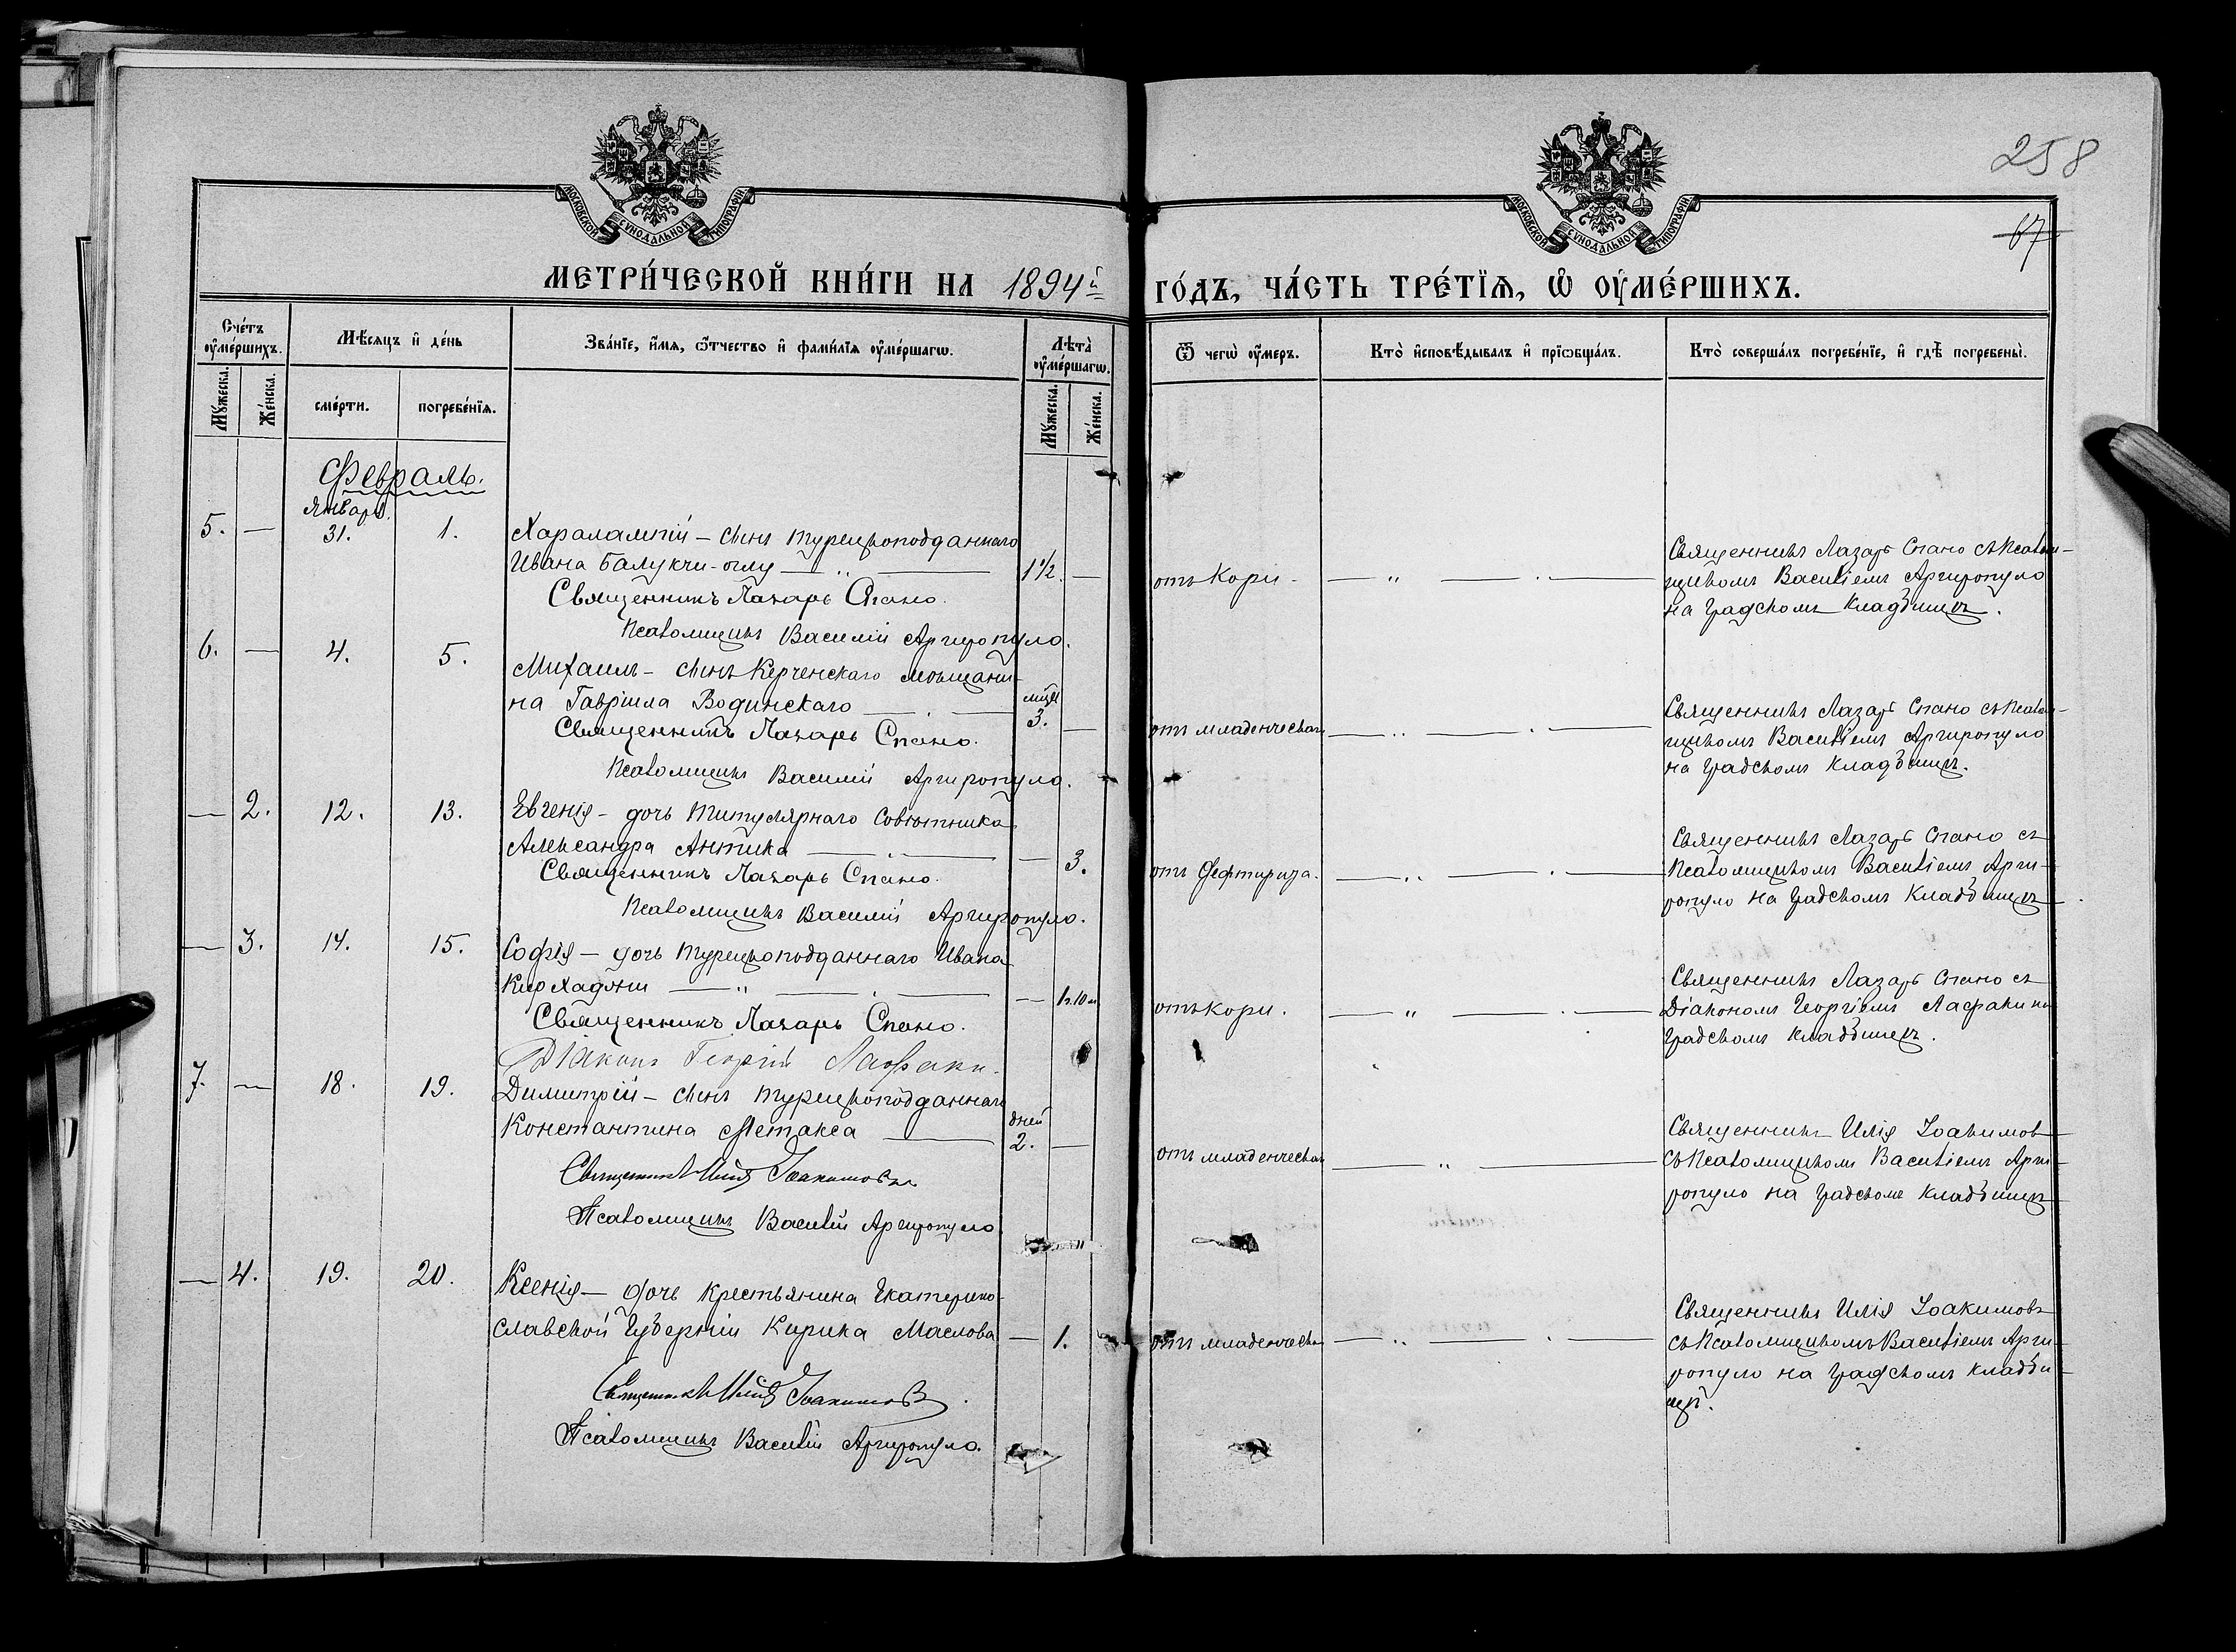 МОСКОВСКОЙ СУНОДАЛЬНОЙ ТИПОГРАФІИ
МОСКОВСКОЙ СУНОДАЛЬНОЙ ТИПОГРАФІИ
258
67
МЕТРИ́ЧЕСКОЙ КНИ́ГИ НА 1894й ГО́ДЪ, ЧА́СТЬ ТРЕ́ТІѦ, Ѡ ОУ҆МЕ́РШИХЪ.
Сче́тъ оу҆ме́ршихъ.
Мꙋ́жеска.
Же́нска.
Мѣ́сѧцъ и҆ де́нь
сме́рти.
погребе́нїѧ.
Зва́нїе, и҆́мѧ, ѻ҆́тчество и҆ фами́лїѧ оу҆ме́ршагѡ.
Лѣта̀ оу҆ме́ршагѡ.
Мꙋ́жеска.
Же́нска.
Ѿ чегѡ̀ оу҆́меръ.
Кто̀ и҆сповѣ́дывалъ и҆ прїѡбща́лъ.
Кто̀ соверша́лъ погребе́нїе, и҆ гдѣ̀ погребены̀.
Февраль.
Январь.
5. — 31. 1. Харалампій – сынъ турецкоподданнаго
Ивана Балукчи-оглу — „ — 1½. —
Священникъ Лазарь Спано.
Псаломщикъ Василій Аргиропуло.
отъ кори. — „ — . —
Священникъ Лазарь Спано съ Псалом-
щикомъ Василіемъ Аргиропуло
на градскомъ кладбищѣ.
6. — 4. 5. Михаилъ – сынъ Керченскаго мѣщани-
на Гавріила Водинскаго — . — мцы 3. —
Священникъ Лазарь Спано.
Псаломщикъ Василій Аргиропуло.
отъ младенческой — „ — . —
Священникъ Лазарь Спано съ Псалом-
щикомъ Василіемъ Аргиропуло
на градскомъ кладбищѣ.
— 2. 12. 13. Евгенія – дочь титулярнаго совѣтника
Александра Антика — „ — — 3.
Священникъ Лазарь Спано.
Псаломщикъ Василій Аргиропуло.
отъ Дефтирита. — „ — . —
Священникъ Лазарь Спано съ
Псаломщикомъ Василіемъ Арги-
ропуло на градскомъ кладбищѣ.
— 3. 14. 15. Софія – дочь турецкоподданнаго Ивана
Кирхаджи — „ — . — — 1г.10м
Священникъ Лазарь Спано.
Діаконъ Георгій Лафаки.
отъ кори. — „ — . —
Священникъ Лазарь Спано съ
Діакономъ Георгіемъ Лафаки на
градскомъ кладбищѣ.
7. — 18. 19. Димитрій – сынъ турецкоподданнаго
Константина Метакса — дней 2. —
Священникъ Илія Іоакимовъ
Псаломщикъ Василій Аргиропуло.
отъ младенческой — „ —
Священникъ Илія Іоакимовъ
съ Псаломщикомъ Василіемъ Арги-
ропуло на градскомъ кладбищѣ
— 4. 19. 20. Ксенія – дочь крестьянина Екатерино-
славской Губерніи Кирика Маслова — 1.
Священникъ Илія Іоакимовъ.
Псаломщикъ Василій Аргиропуло.
отъ младенческой — „ — . —
Священникъ Илія Іоакимовъ
съ Псаломщикомъ Василіемъ Арги-
ропуло на градскомъ кладби-
щѣ.